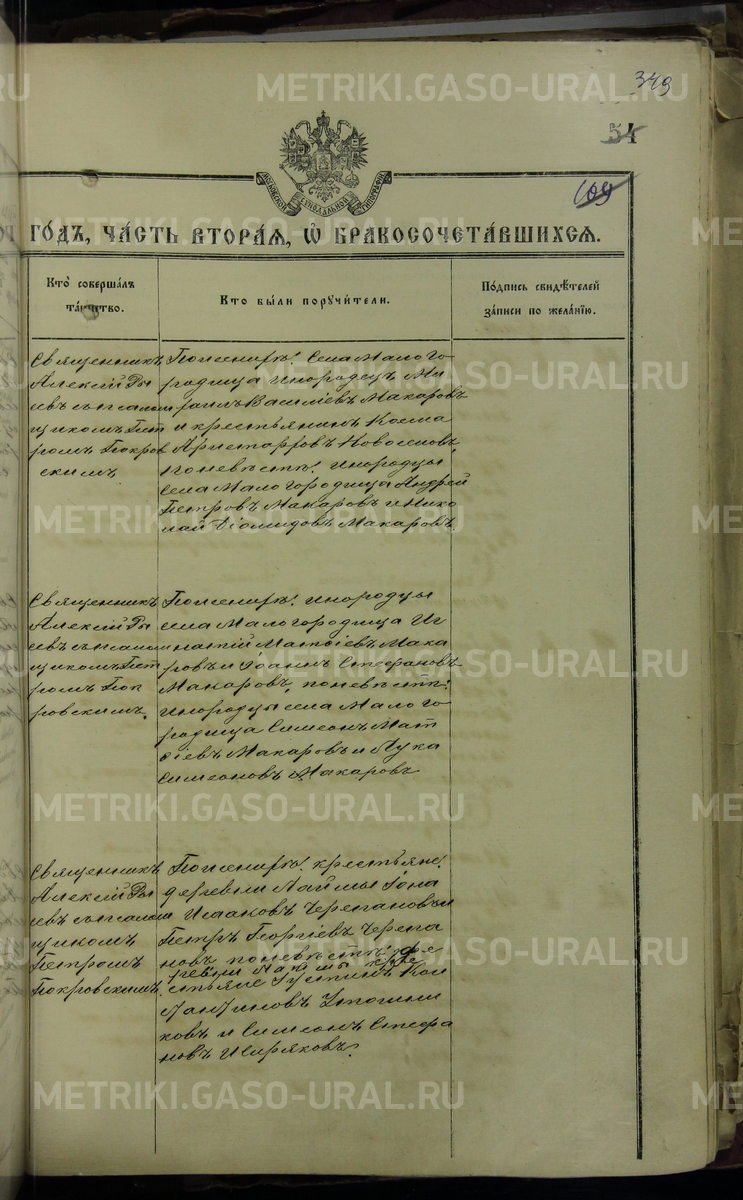 METRIKI.GASO-URAL.RU
349
54
109
МОСКОВСКОЙ СУНОДАЛЬНОЙ ТИПОГРАФІИ
ГО́ДЪ, ЧА́СТЬ ВТОРА́Я, Ѡ҆ БРАКОСОЧЕТА́ВШИХСЯ.
Кто̀ соверша́лъ
та́инство.
Кто бы́ли поручи́тели.
По́дпись свидѣ́телей
за́писи по жела́нію.
Священникъ
Алексій Ры
евъ съ псалом
щикомъ Пет
ромъ Покров
скимъ
По женихѣ: села Малого
родища инородецъ Ми
хаилъ Василіевъ Макаровъ
и крестьянинъ Косма
Аристарховъ Новоселовъ,
по невѣстѣ: инородцы
села Малогородища Андрей
Петровъ Макаровъ и Нико
лай Діомидовъ Макаровъ.
Священникъ
Алексій Ры
евъ съ псалом
щикомъ Пет
ромъ Пок
ровскимъ.
По женихѣ: инородцы
села Малогородища Иг
натій Матѳіевъ Мака
ровъ и Іоаннъ Стефановъ
Макаровъ, по невѣстѣ:
инородцы села Малого
родища Симеонъ Мат
ѳіевъ Макаровъ и Лука
Симеоновъ Макаровъ
Священникъ
Алексій Ры
евъ съ псалом
щикомъ
Петромъ
Покровскимъ.
По женихѣ: крестьяне:
деревни Лаймы Іона
Исааковъ Черепановъ и
Петръ Георгіевъ Черепа
новъ по невѣстѣ: де
ревни Лаймы кре
стьяне Іустинъ Кон
стантиновъ
ковъ и Симеонъ Стефа
новъ Ширяковъ.